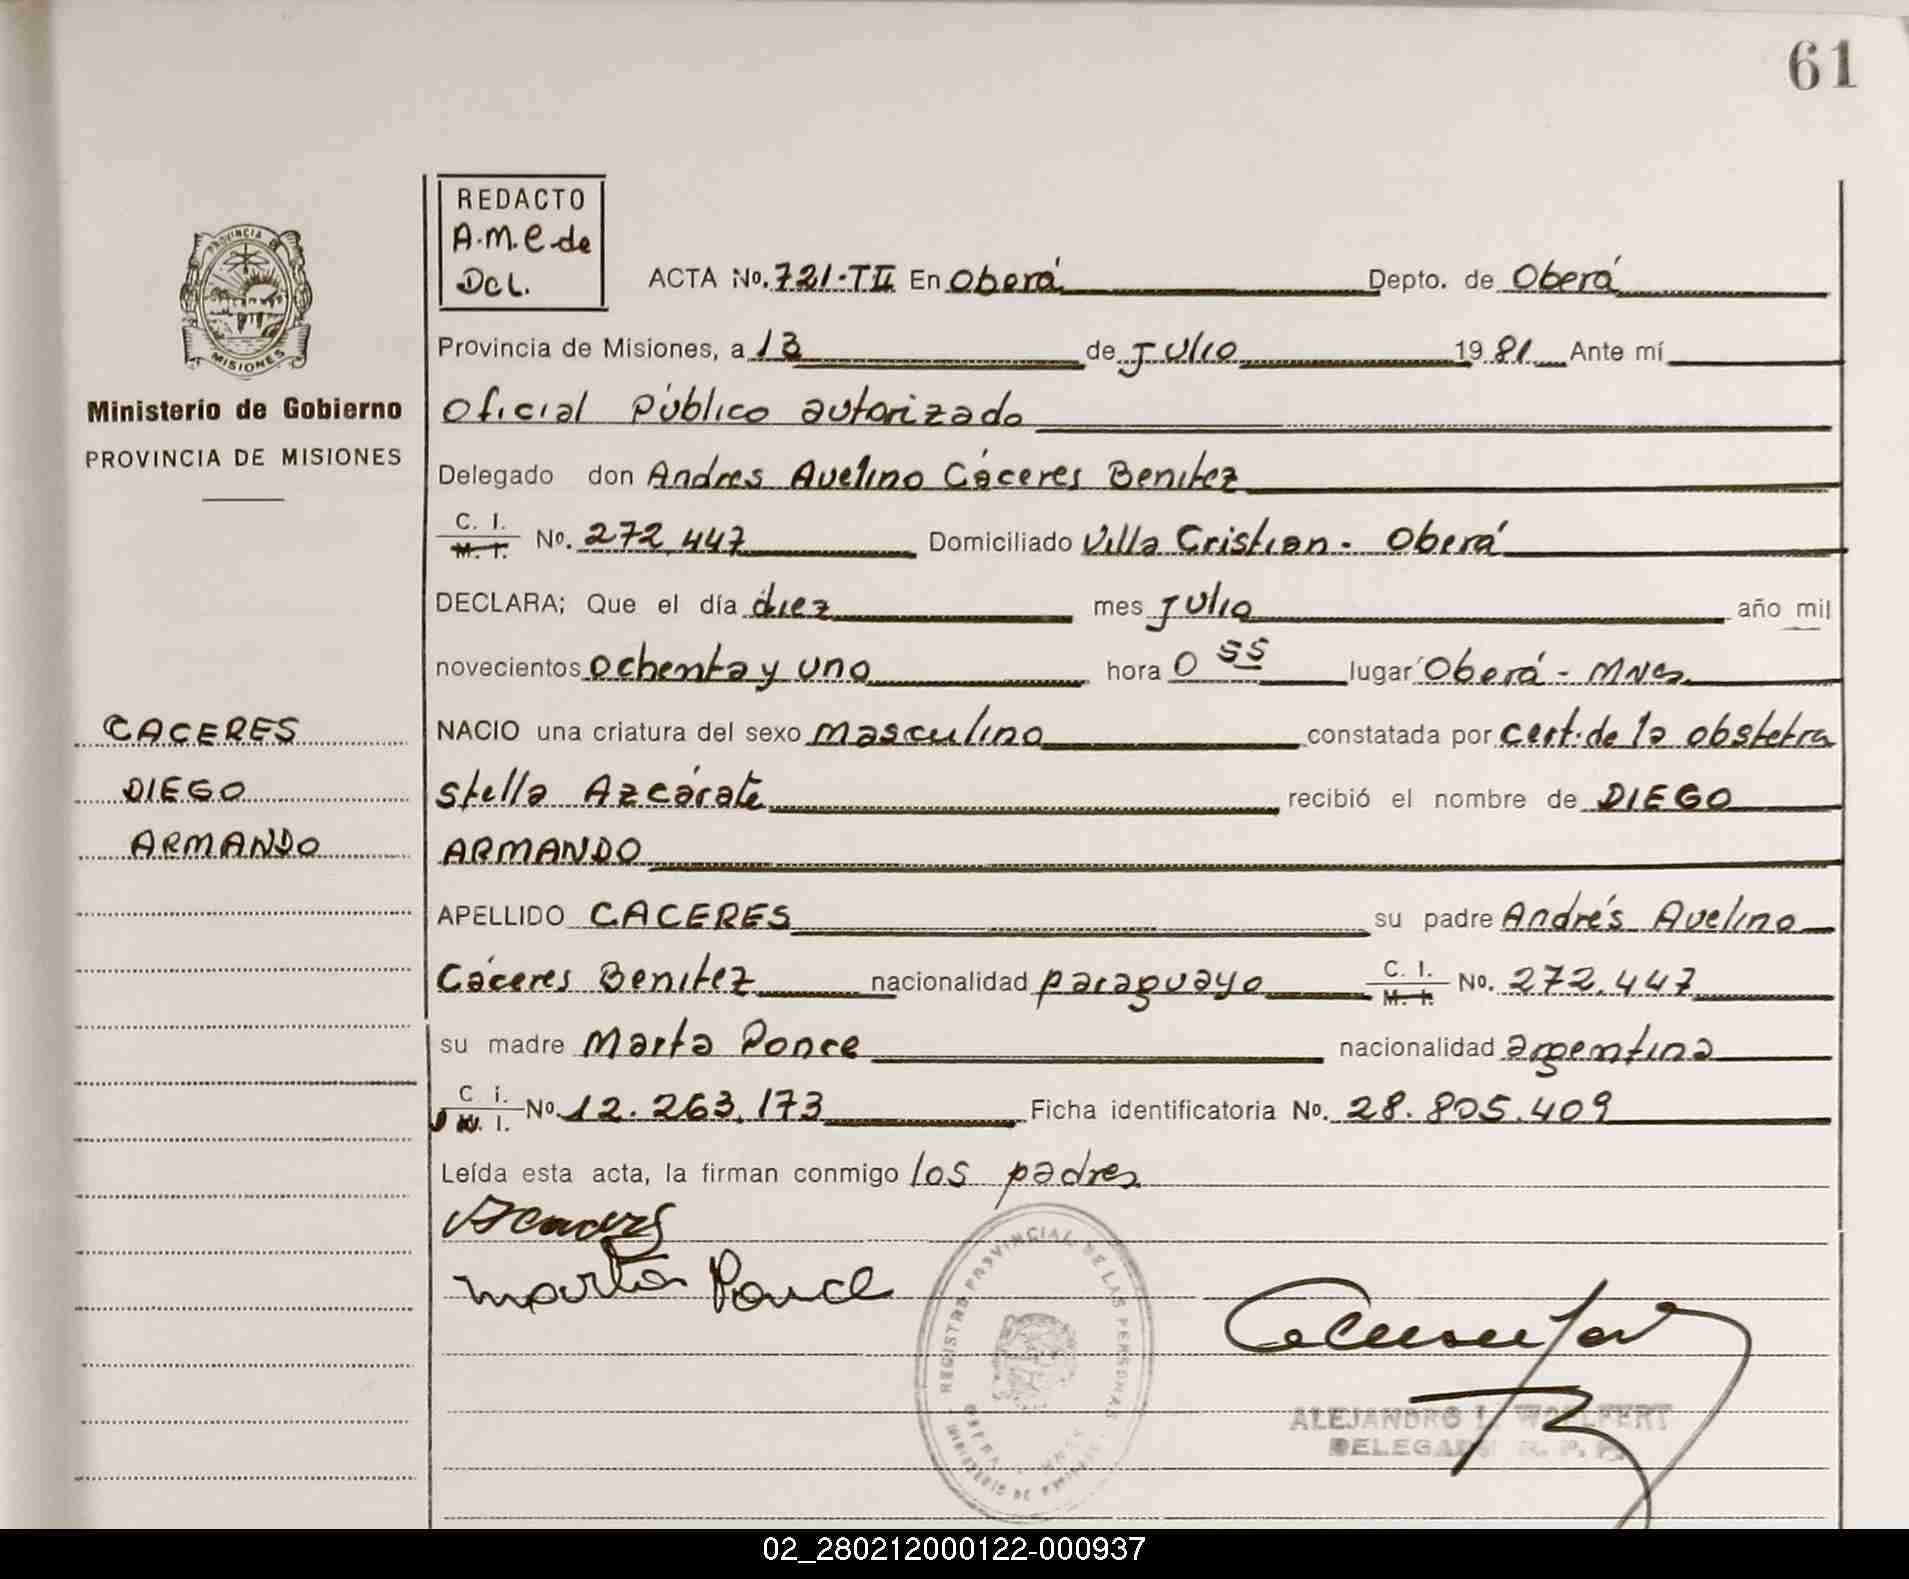 61
REDACTO
A.M.E. de
Del.
PROVINCIA DE
MISIONES
Ministerio de Gobierno
PROVINCIA DE MISIONES
ACTA No. 721-TII En Oberá Depto. de Oberá
Provincia de Misiones, a 13 de Julio 1981 Ante mí
Oficial Público autorizado
Delegado don Andres Avelino Cáceres Benitez
C. I.
M. I. No. 272.447 Domiciliado Villa Cristian - Oberá
DECLARA; Que el día diez mes Julio año mil
novecientos ochenta y uno hora 0 55 lugar Oberá - Mnes
NACIO una criatura del sexo masculino constatada por cert. de la obstetra
Stella Azcárate recibió el nombre de DIEGO
ARMANDO
APELLIDO CACERES su padre Andrés Avelino
Cáceres Benitez nacionalidad paraguayo C. I. M. I. No. 272.447
su madre Marta Ponce nacionalidad argentina
C. I. M. I. No. 12.263.173 Ficha identificatoria No. 28.805.409
Leída esta acta, la firman conmigo los padres
Marta Ponce
CACERES
DIEGO
ARMANDO
REGISTRO PROVINCIAL DE LAS PERSONAS
ALEJANDRO L. WOLFERT
DELEGADO R. P. P.
02_280212000122-000937